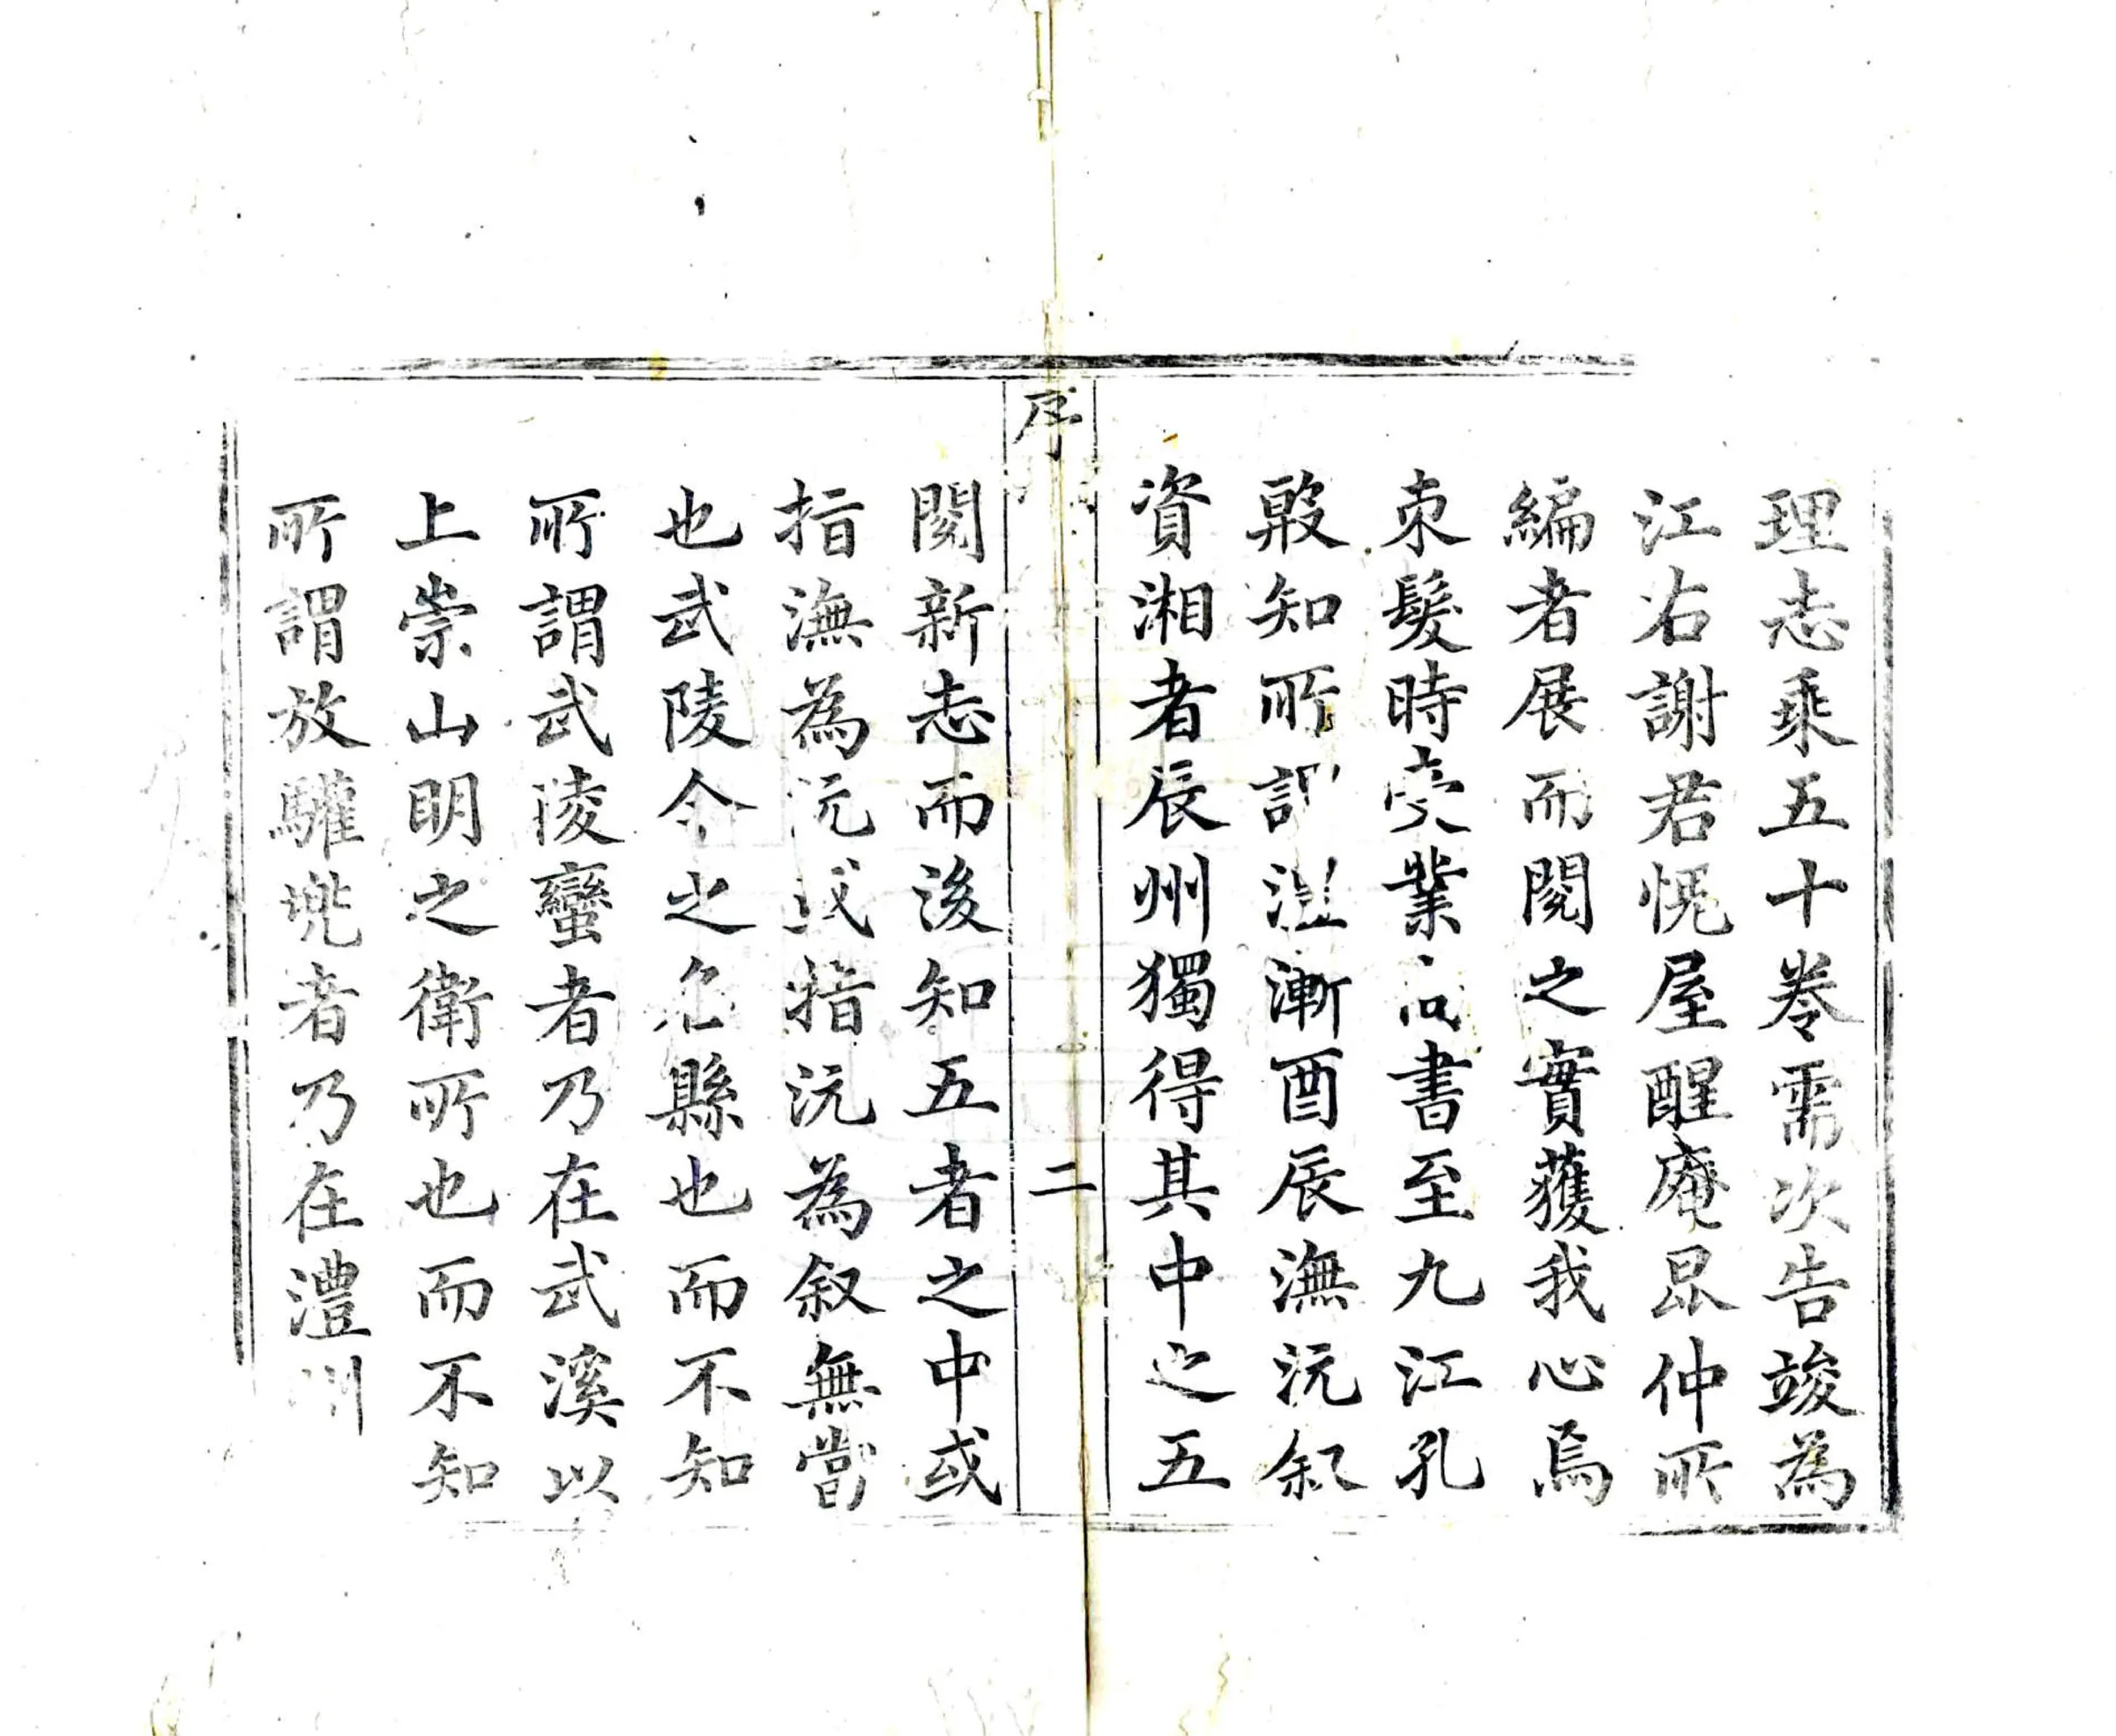 理志乘五十卷需次告竣為
江右謝君悦屋醒庵昆仲所
編者展而閱之實獲我心焉
束髮時受業尚書至九江孔
殷知所謂漸酉辰潕沅叙
資湘者辰州獨得其中之五
序
二
閱新志而後知五者之中或
指潕為沅或指沅為叙無當
也武陵今之名縣也而不知
所謂武陵蠻者乃在武溪以
上崇山明之衛所也而不知
所謂放驩兜者乃在澧州